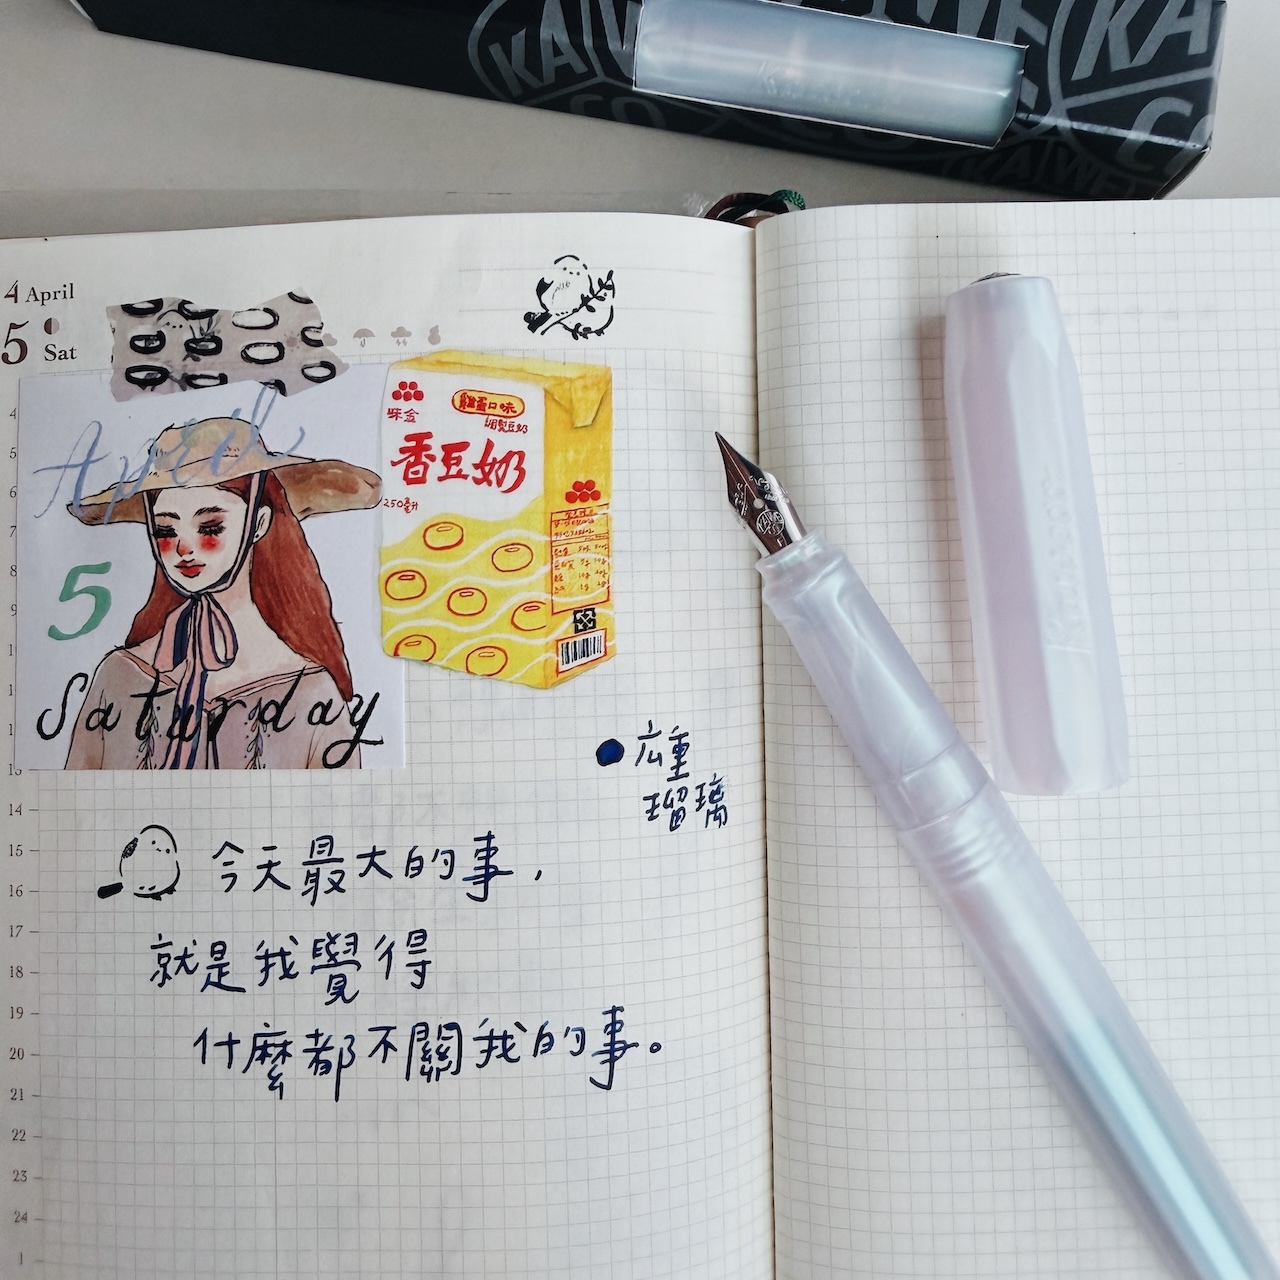 KAWE
CO
4 April
5 Sat
April
5
Saturday
味全
雞蛋口味
調製豆奶
香豆奶
250毫升
Kaweco
KAWE
CO
広重
瑠璃
今天最大的事,
就是我覺得
什麼都不關我的事。
14
15
16
17
18
19
20
21
22
23
24
1